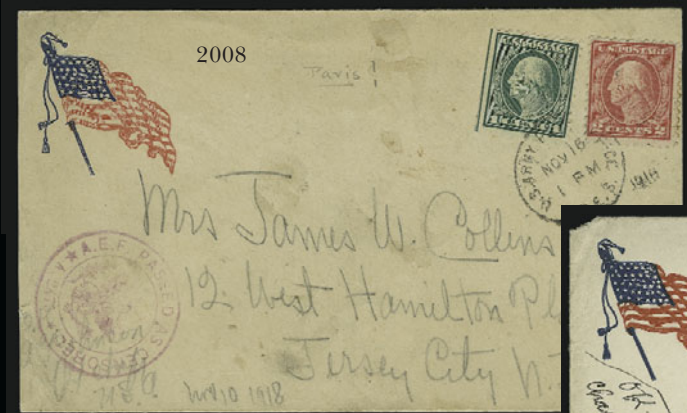 2008
Paris!
U.S. POSTAGE
1 CENT 1
2 CENTS 2
U.S. ARMY
NOV 16
1 PM
1918
Mrs James W. Collins
12 West Hamilton Pl
Jersey City N.
A.E.F. PASSED AS CENSORED
Nov 10 1918
Off